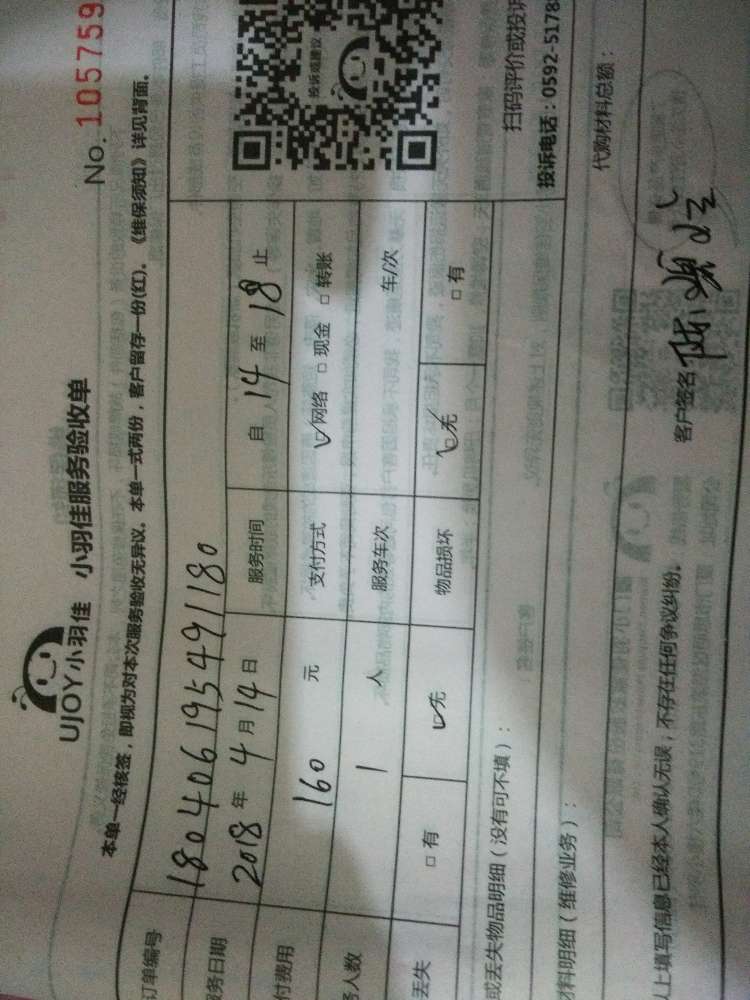 No. 105759
UJOY小羽佳 小羽佳服务验收单
本单一经核签，即视为对本次服务验收无异议。本单一式两份，客户留存一份(红)。《维保须知》详见背面。
订单编号 180406195491180
务日期 2018 年 4 月 14 日 服务时间 自 14 至 18 止
付费用 160 元 支付方式 ☑网络 □现金 □转账
务人数 1 人 服务车次 车/次
丢失 □有 ☑无 物品损坏 ☑无 □有
投诉或建议
扫码评价或投诉
投诉电话：0592-5178
或丢失物品明细（没有可不填）：
材料明细（维修业务）：
代购材料总额：
以上填写信息已经本人确认无误，不存在任何争议纠纷。
客户签名